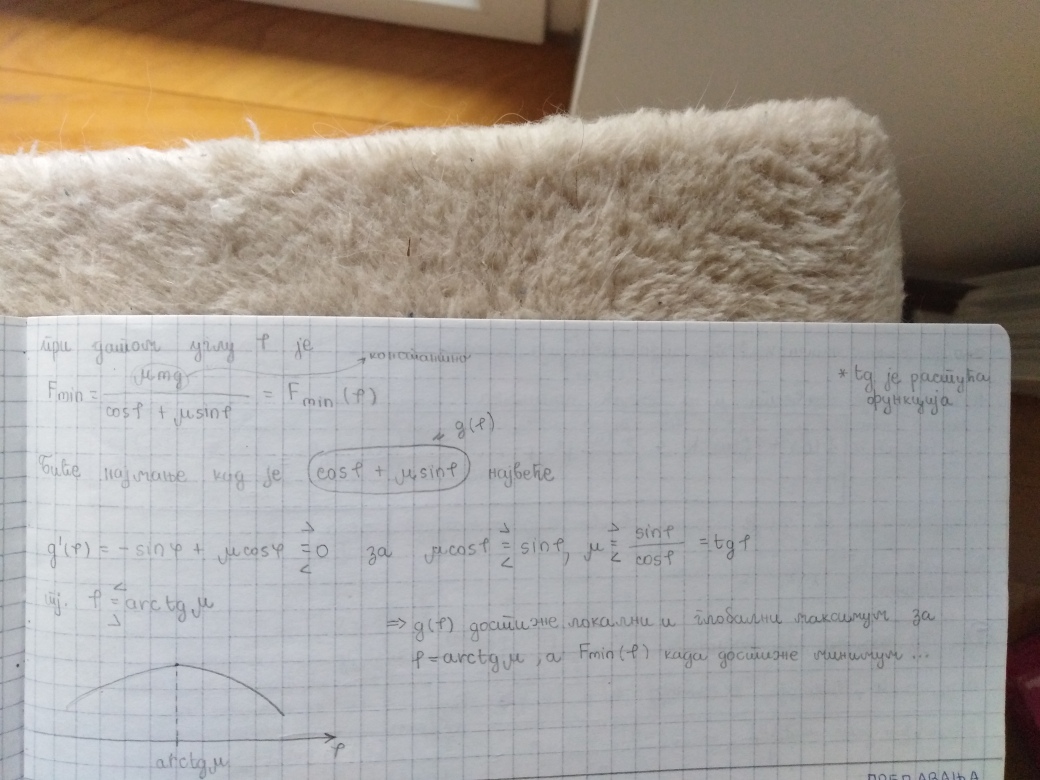 при датом углу φ је
константно
F_min = μmg / (cosφ + μsinφ) = F_min(φ)
* tg је растућа
функција
g(φ)
биће најмање кад је cosφ + μsinφ највеће
g'(φ) = -sinφ + μcosφ ⪌ 0 за μcosφ ⪌ sinφ, μ ⪌ sinφ/cosφ = tgφ
тј. φ ⪋ arctgμ
⇒ g(φ) достиже локални и глобални максимум за
φ = arctgμ, а F_min(φ) тада достиже минимум ...
φ
arctgμ